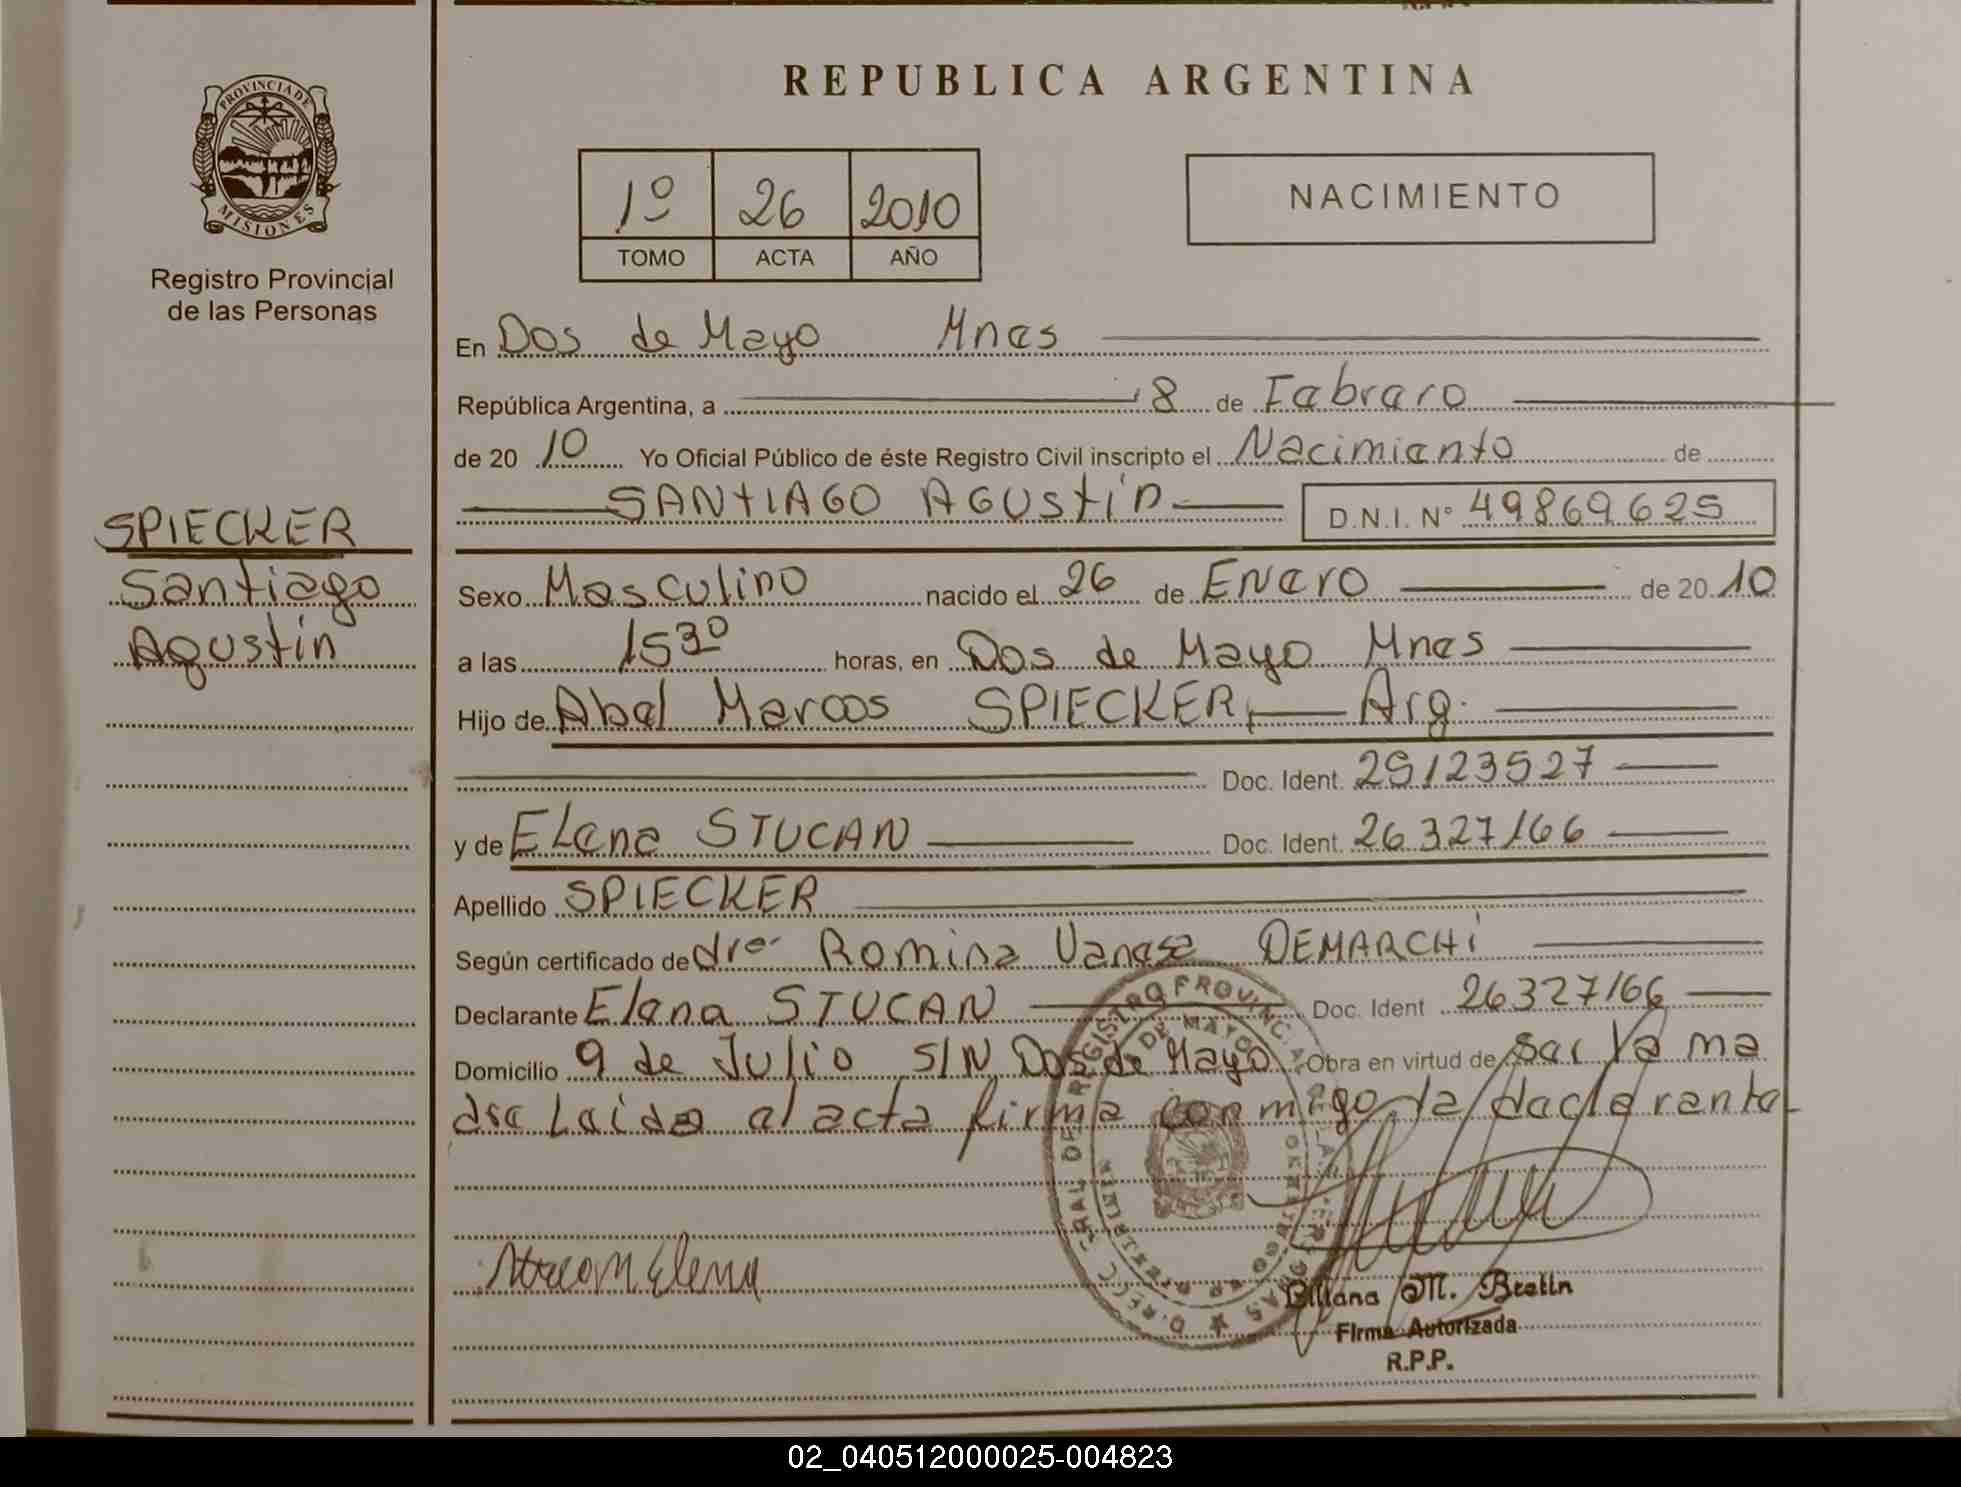 REPUBLICA ARGENTINA
PROVINCIA DE
MISIONES
Registro Provincial
de las Personas
1º 26 2010
TOMO ACTA AÑO
NACIMIENTO
En Dos de Mayo Mnes
República Argentina, a 8 de Febrero
de 20 10 Yo Oficial Público de éste Registro Civil inscripto el Nacimiento de
SANTIAGO AGUSTIN D.N.I. N° 49869625
SPIECKER
Santiago
Agustin
Sexo Masculino nacido el 26 de ENERO de 20 10
a las 15 30 horas, en Dos de Mayo Mnes
Hijo de Abel Marcos SPIECKER, Arg.
Doc. Ident. 25123527
y de Elena STUCAN Doc. Ident. 26327166
Apellido SPIECKER
Según certificado de dra Romina Vanesa DEMARCHI
Declarante Elena STUCAN Doc. Ident 26327166
Domicilio 9 de Julio S/N Dos de Mayo Obra en virtud de ser la ma
dre Leida el acta firma conmigo la declarante
Elena
Liliana M. Bretin
Firma Autorizada
R.P.P.
02_040512000025-004823